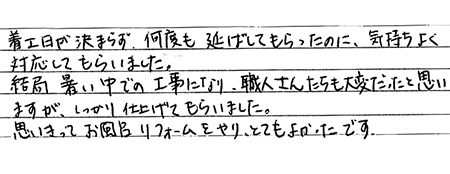 着工日が決まらず、何度も延ばしてもらったのに、気持ちよく
対応してもらいました。
結局暑い中での工事になり、職人さんたちも大変だったと思い
ますが、しっかり仕上げてもらいました。
思いきってお風呂リフォームをやり、とてもよかったです。